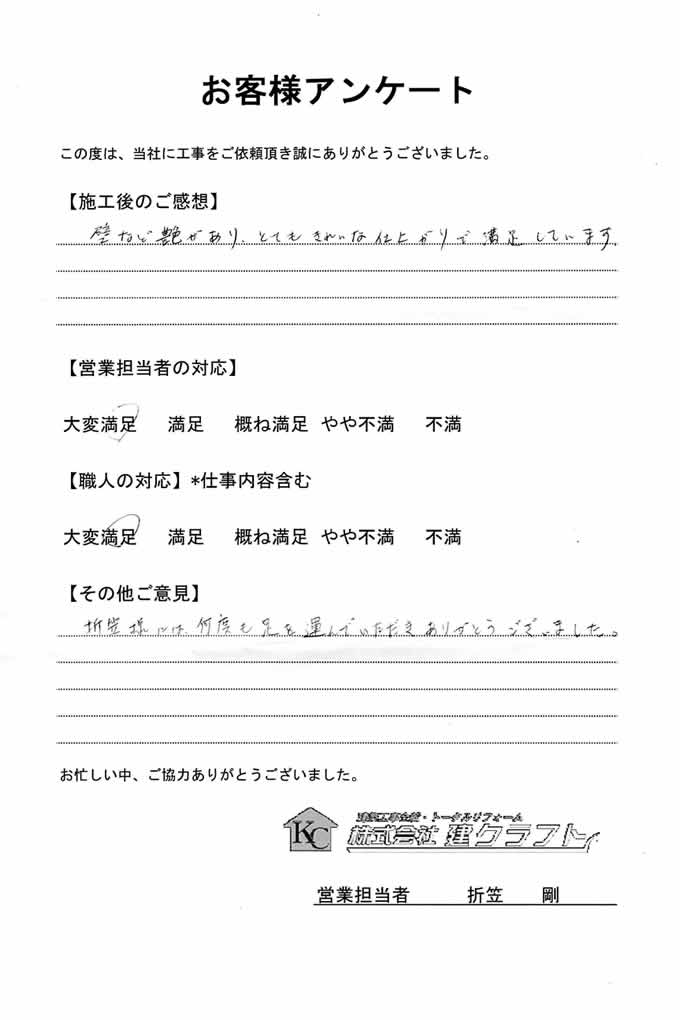 お客様アンケート
この度は、当社に工事をご依頼頂き誠にありがとうございました。
【施工後のご感想】
壁など艶があり、とてもきれいな仕上がりで満足しています。
【営業担当者の対応】
大変満足 満足 概ね満足 やや不満 不満
【職人の対応】*仕事内容含む
大変満足 満足 概ね満足 やや不満 不満
【その他ご意見】
折笠様には、何度も足を運んでいただきありがとうございました。
お忙しい中、ご協力ありがとうございました。
KC
建築工事全般・トータルリフォーム
株式会社 建クラフト
営業担当者 折笠 剛